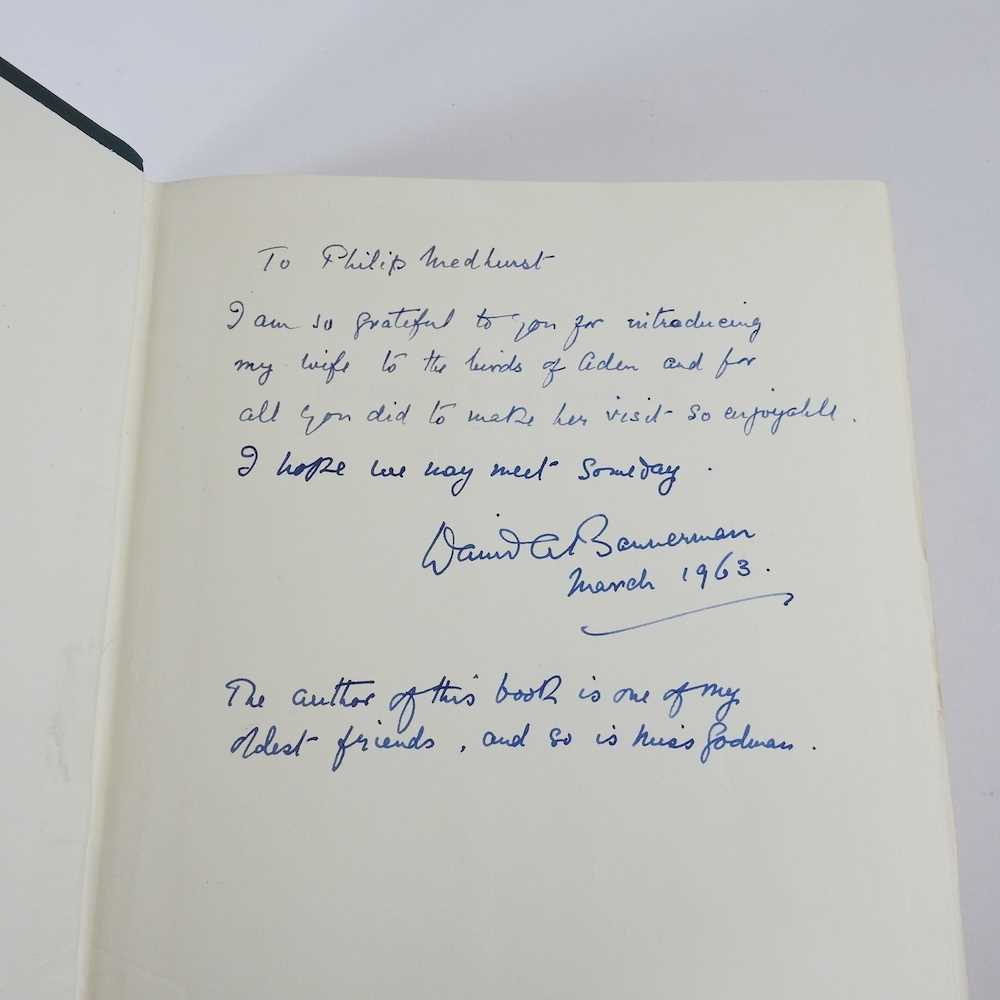 To Philip Medhurst
I am so grateful to you for introducing
my wife to the birds of Aden and for
all you did to make her visit so enjoyable.
I hope we may meet someday.
David A Bannerman
March 1963.
The author of this book is one of my
oldest friends, and so is Miss Godman.